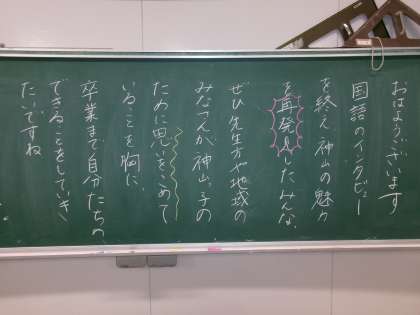 おはようございます
国語のインタビュー
を終え、神山の魅力
を再発見したみんな。
ぜひ先生方や地域の
みなさんが神山っ子の
ために思いをこめて
いることを胸に、
卒業まで自分たちの
できることをしていき
たいですね